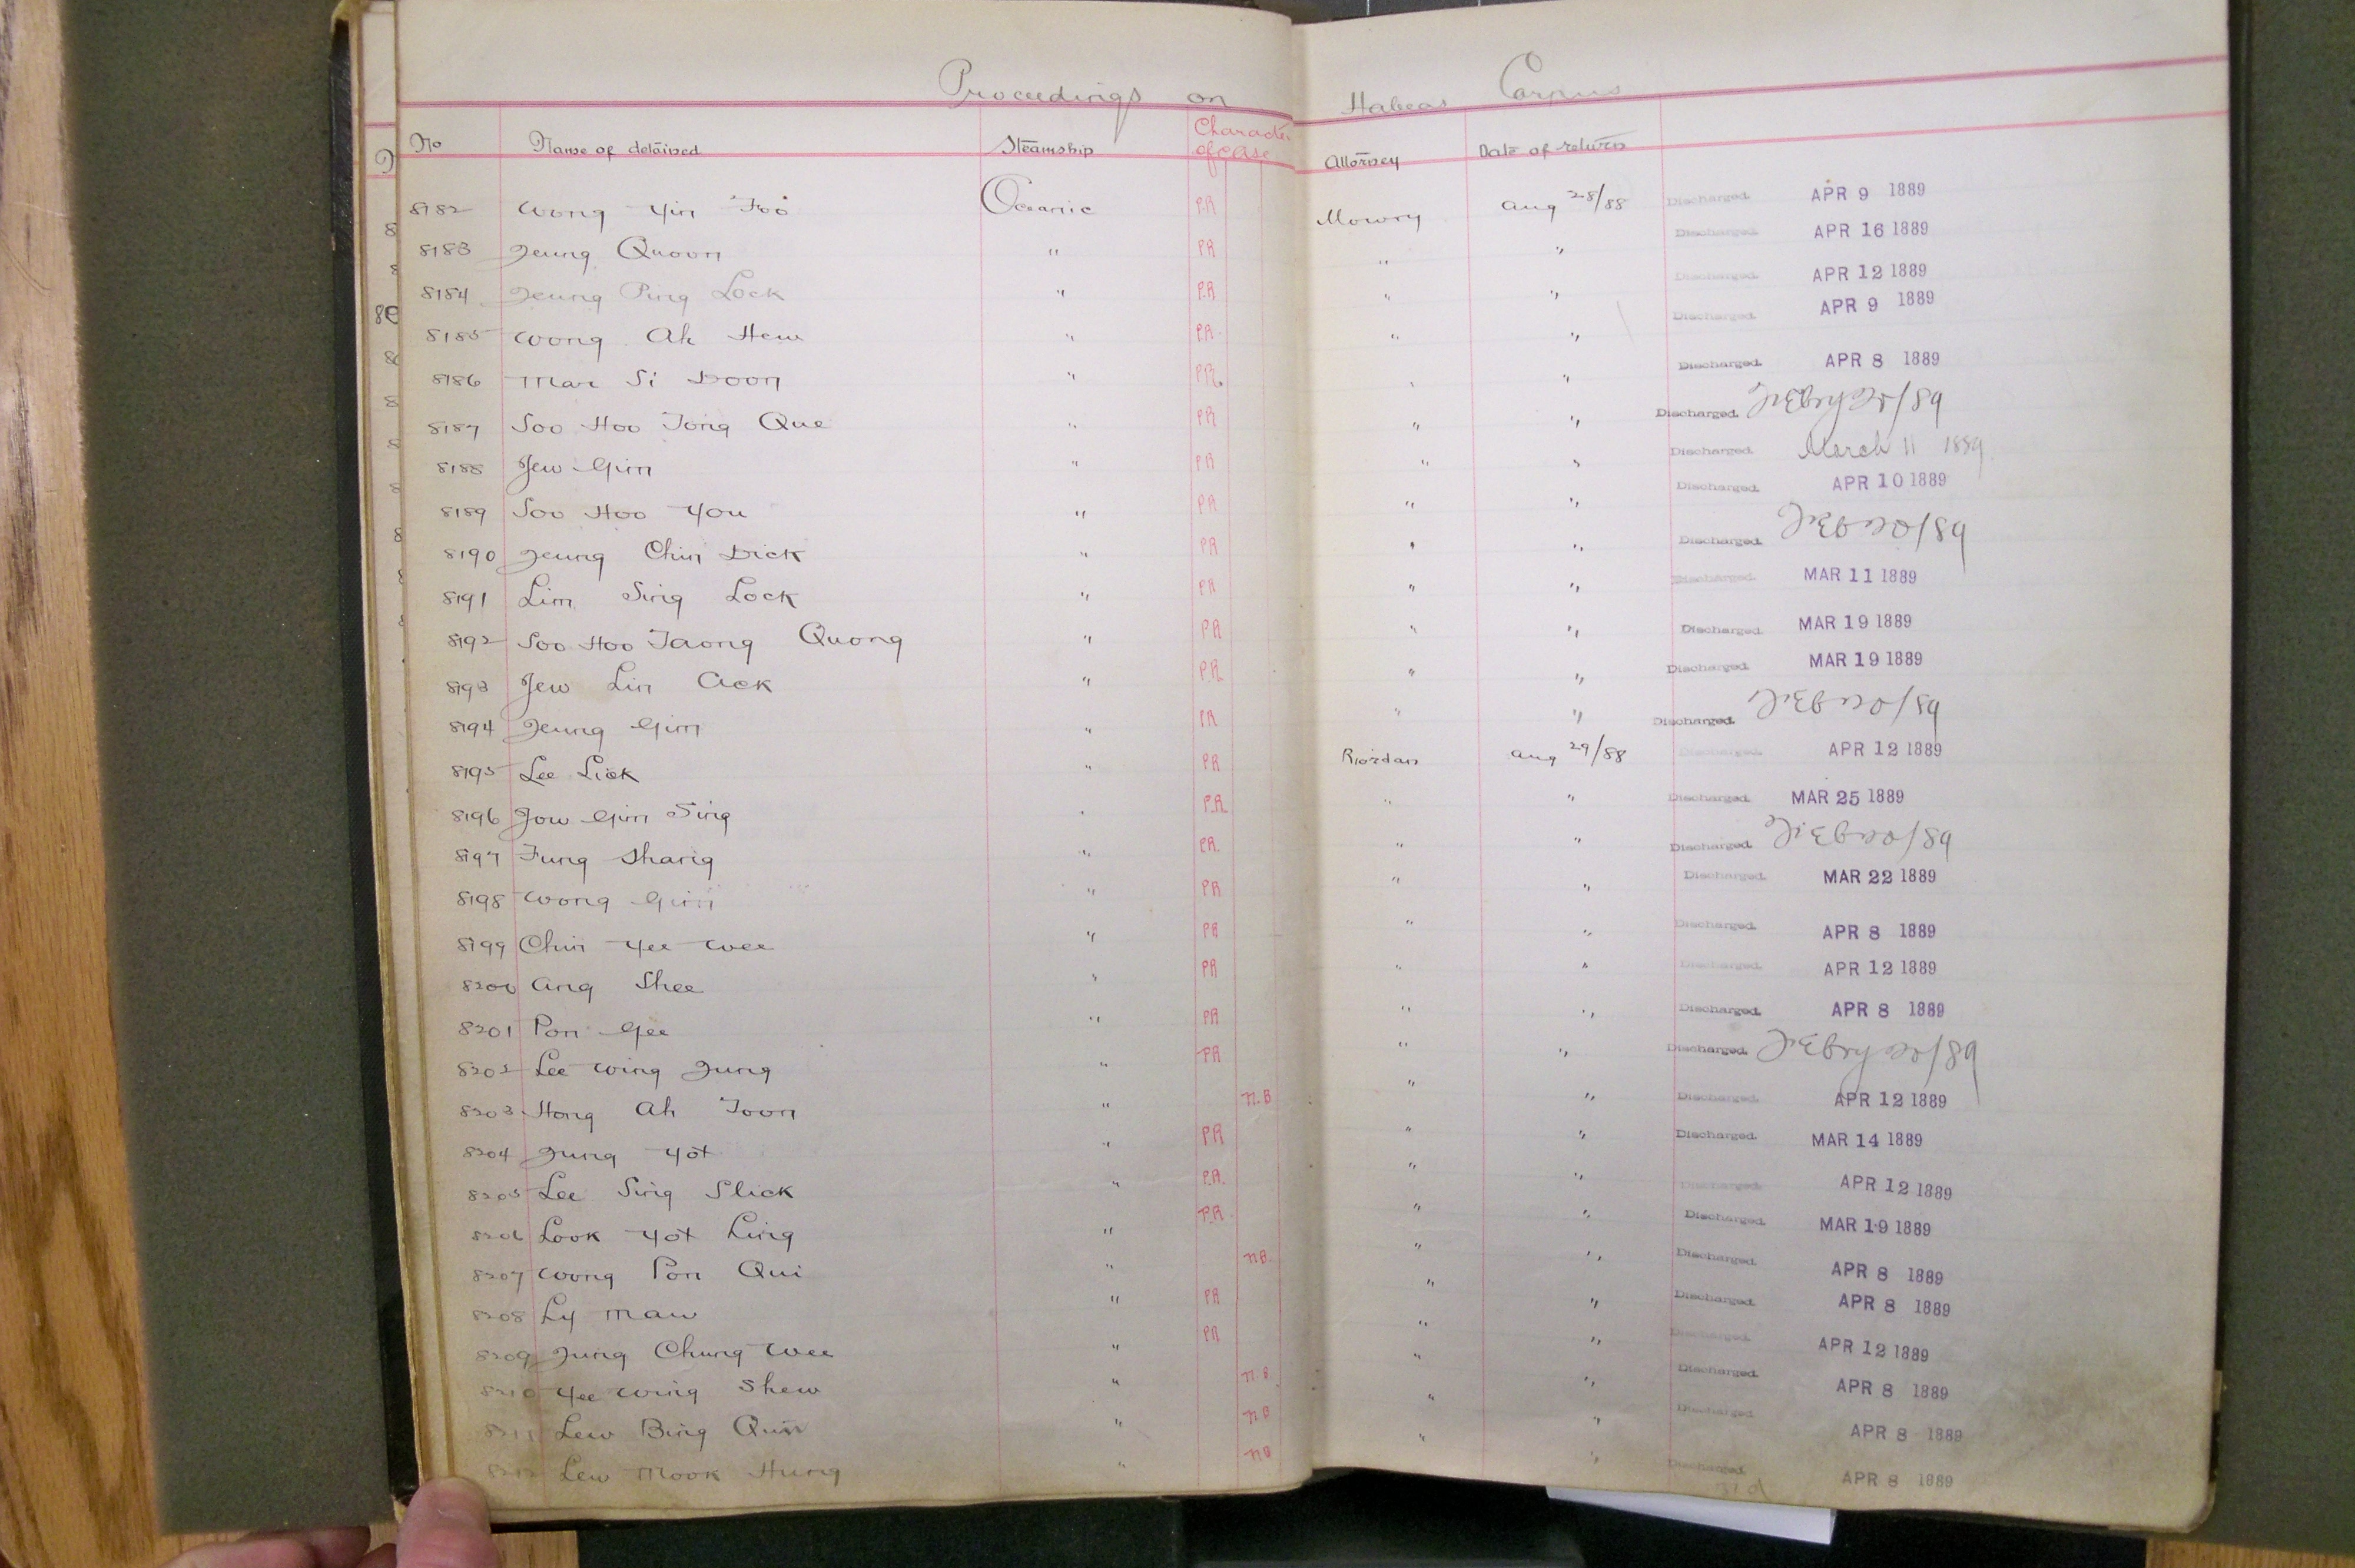 Proceedings on Habeas Corpus
No Name of detained Steamship Character of case Attorney Date of return
8182 Wong Yin Foo Oceanic PR Mowry Aug 28/88 Discharged. APR 9 1889
8183 Jeung Quoon " PR " " Discharged. APR 16 1889
8184 Jeung Ping Lock " PR " " Discharged. APR 12 1889
8185 Wong Ah Hew " PR " " Discharged. APR 9 1889
8186 Mar Si Doon " PR " " Discharged. APR 8 1889
8187 Soo Hoo Tong Que " PR " " Discharged. /89
8188 Jew Gim " PR " " Discharged. March 11 1889
8189 Soo Hoo You " PR " " Discharged. APR 10 1889
8190 Jeung Chin Dick " PR " " Discharged. /89
8191 Lim Sing Lock " PR " " Discharged. MAR 11 1889
8192 Soo Hoo Taong Quong " PR " " Discharged. MAR 19 1889
8193 Jew Lin Ack " PR " " Discharged. MAR 19 1889
8194 Jeung Gim " PR " " Discharged. /89
8195 Lee Lick " PR Riordan Aug 29/88 Discharged. APR 12 1889
8196 Jow Gim Sing " PR " " Discharged. MAR 25 1889
8197 Fung Shang " PR " " Discharged. /89
8198 Wong Gim " PR " " Discharged. MAR 22 1889
8199 Chin Yee Wee " PR " " Discharged. APR 8 1889
8200 Ang Shee " PR " " Discharged. APR 12 1889
8201 Pon Gee " PR " " Discharged. APR 8 1889
8202 Lee Wing Jung " PR " " Discharged. /89
8203 Hong Ah Toon " N.B " " Discharged. APR 12 1889
8204 Jung Yot " PR " " Discharged. MAR 14 1889
8205 Lee Sing Slick " PR " " Discharged. APR 12 1889
8206 Look Yot Ling " PR " " Discharged. MAR 19 1889
8207 Wong Pon Qui " NB " " Discharged. APR 8 1889
8208 Ly Maw " PR " " Discharged. APR 8 1889
8209 Jung Chung Wee " PR " " Discharged. APR 12 1889
8210 Yee Wing Shew " N.B. " " Discharged. APR 8 1889
8211 Lew Bing Qun " NB " " Discharged. APR 8 1889
8212 Lew Mook Hung " NB " Discharged. APR 8 1889